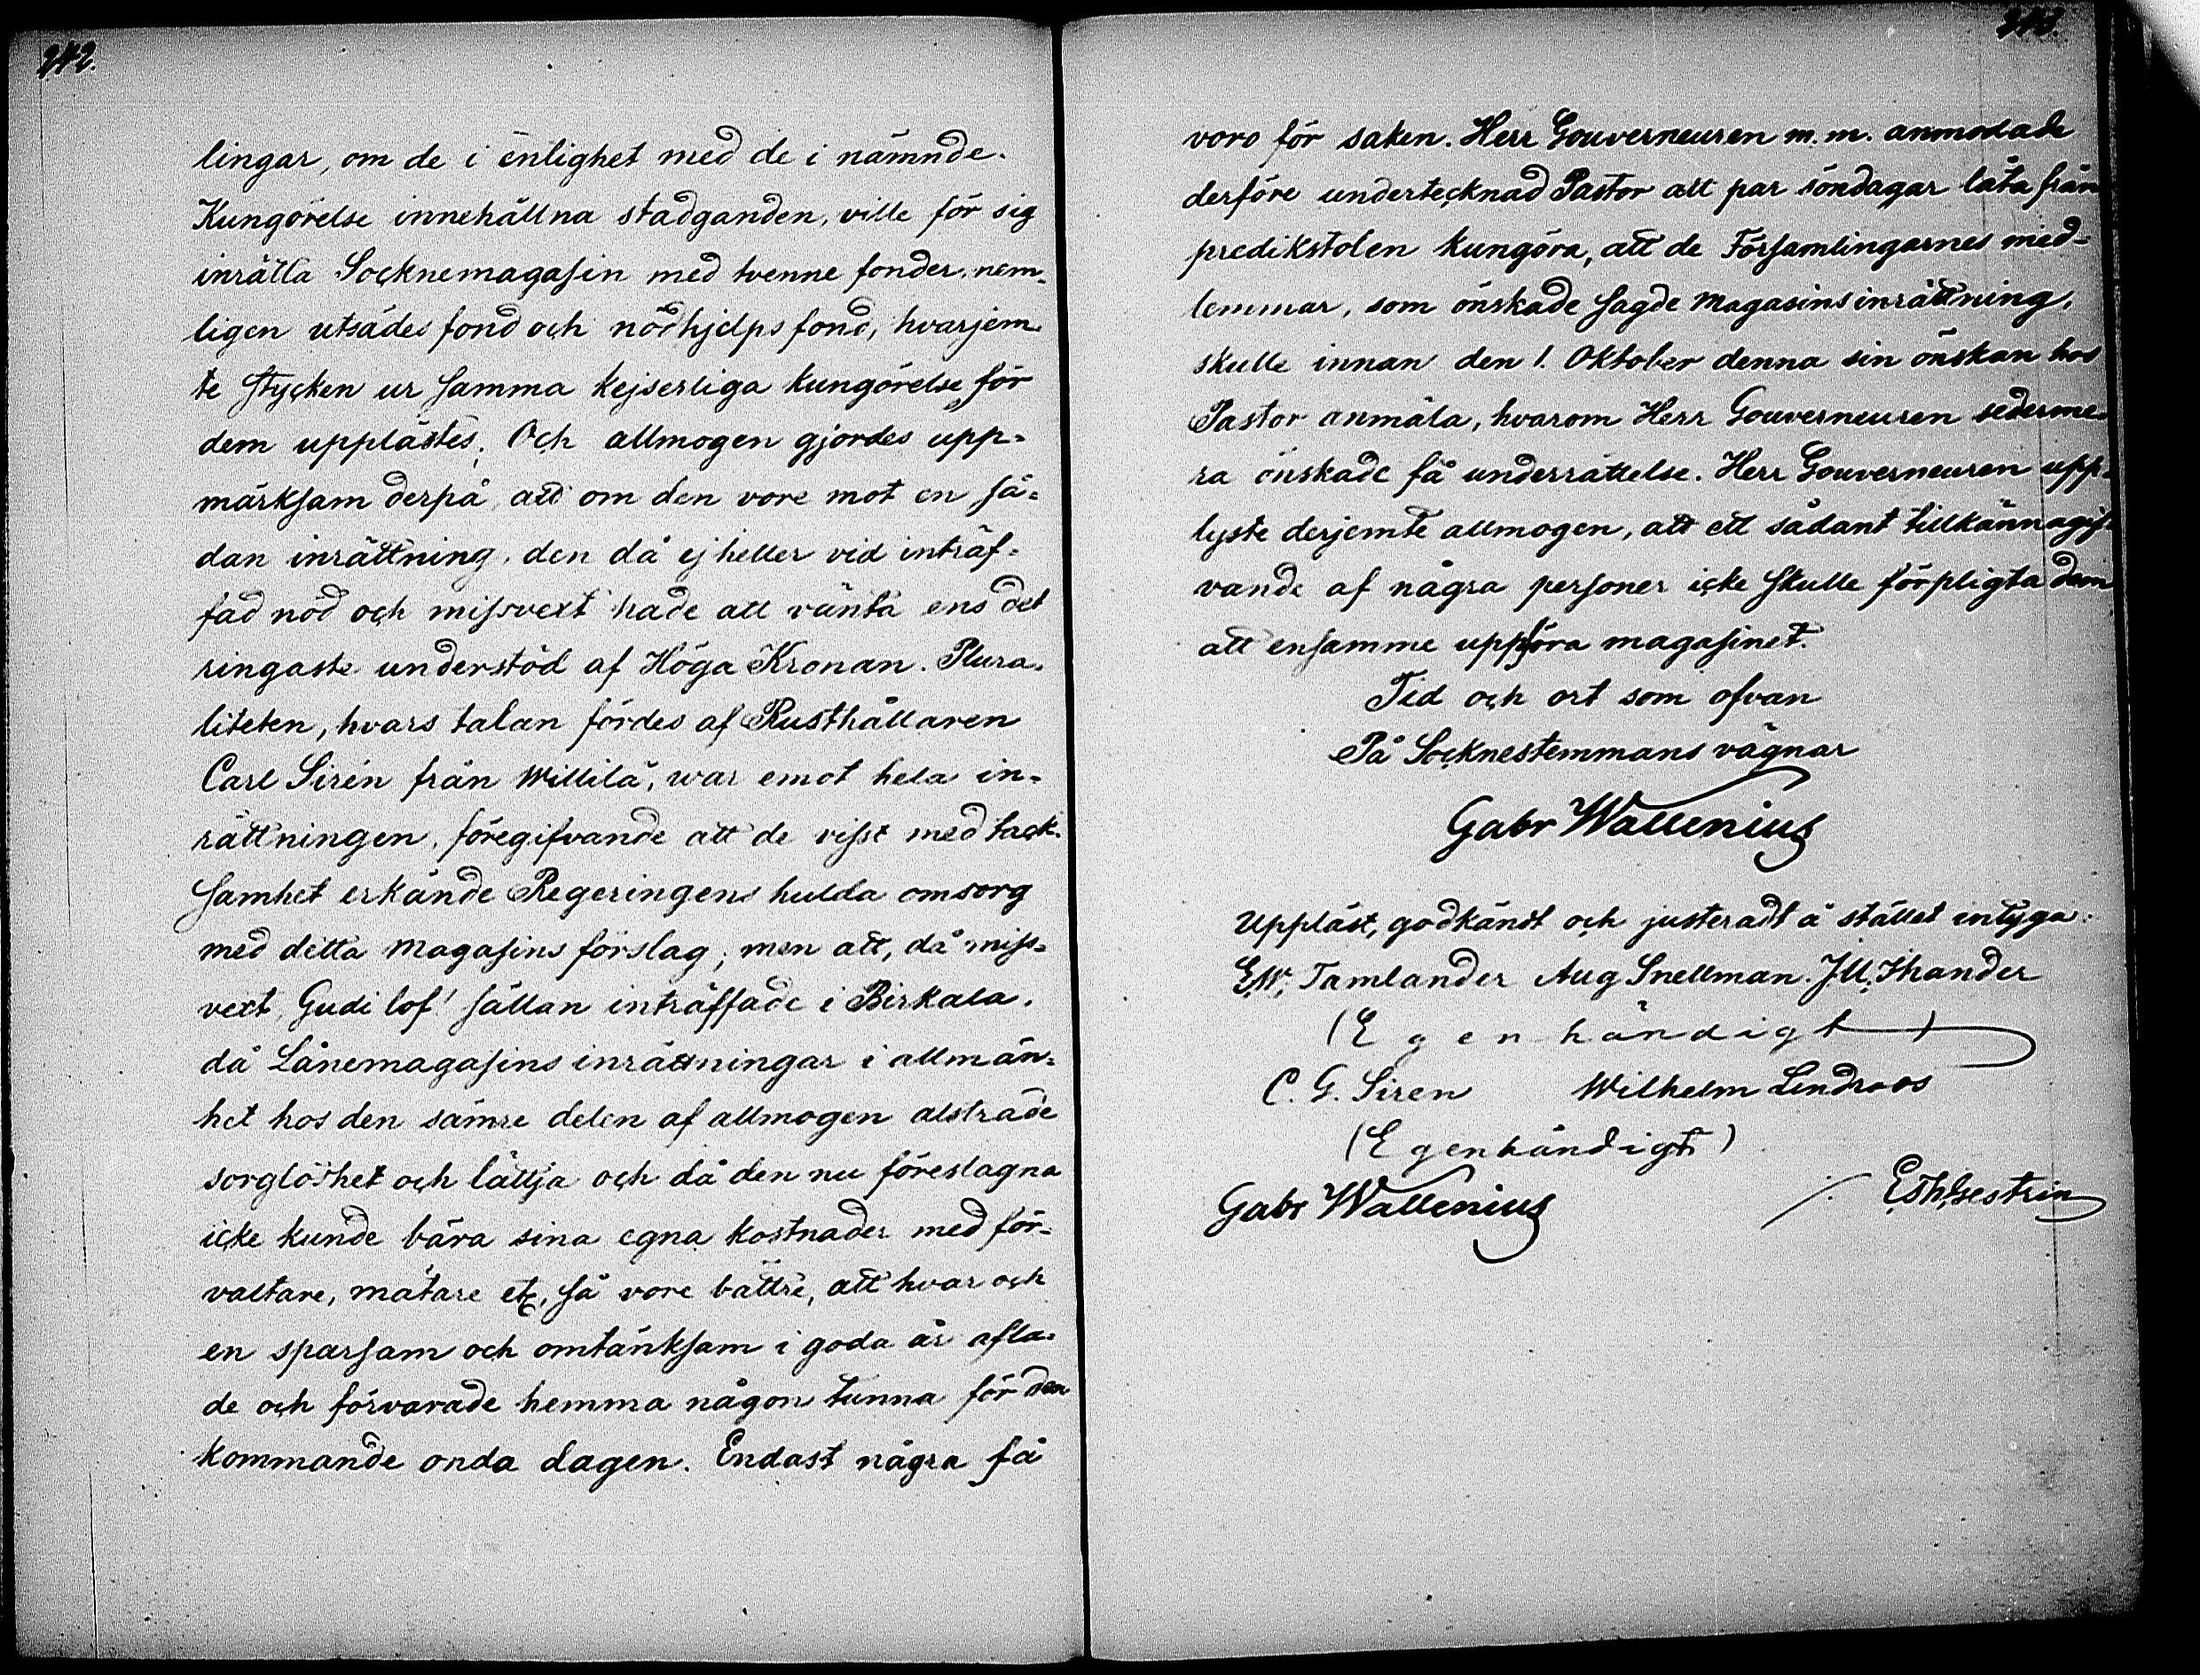 242.
lingar, om de i enlighet med de i nämnde
Kungörelse innehållna stadganden, ville för sig
inrätta Socknemagasin med tvenne fonder, nem-
ligen utsädes fond och nödhjelps fond, hvarjem-
te stycken ur samma kejserliga kungörelse för
dem upplästes. Och allmogen gjordes upp-
märksam derpå, att om den vore mot en så-
dan inrättning, den då ej heller vid inträf-
fad nöd och missvext hade att vänta ens det
ringaste understöd af Höga Kronan. Plura-
liteten, hvars talan fördes af Rusthållaren
Carl Sirén från Willilä, war emot hela in-
rättningen, föregifvande att de visst med tack-
samhet erkände Regeringens hulda omsorg
med detta magasins förslag; men att, då miss-
vext, Gudi lof! sällan inträffade i Birkala,
då Lånemagasins inrättningar i allmän-
het hos den sämre delen af allmogen alstrade
sorglöshet och lättja och då den nu föreslagna
icke kunde bära sina egna kostnader med för-
valtare, mätare etc, så vore bättre, att hvar och
en sparsam och omtänksam i goda år afla-
de och förvarade hemma någon tunna för den
kommande onda dagen. Endast några få
243.
voro för saken. Herr Gouverneuren m. m. anmodade
derföre undertecknad Pastor att par söndagar låta från
predikstolen kungöra, att de Församlingarnes med-
lemmar, som önskade sagde magasins inrättning,
skulle innan den 1. Oktober denna sin önskan hos
Pastor anmäla, hvarom Herr Gouverneuren sederme-
ra önskade få underrättelse. Herr Gouverneuren upp-
lyste derjemte allmogen, att ett sådant tillkännagif-
vande af några personer icke skulle förpligta dem
att ensamme uppföra magasinet.
Tid och ort som ofvan
På Socknestemmans vägnar
Gabr Wallenius
Uppläst, godkändt och justeradt å stället intyga:
E.W. Tamlander Aug Snellman. J.M. Ithander
(Egenhändigt)
C. G. Siren Wilhelm Lindroos
(Egenhändigt)
Gabr Wallenius